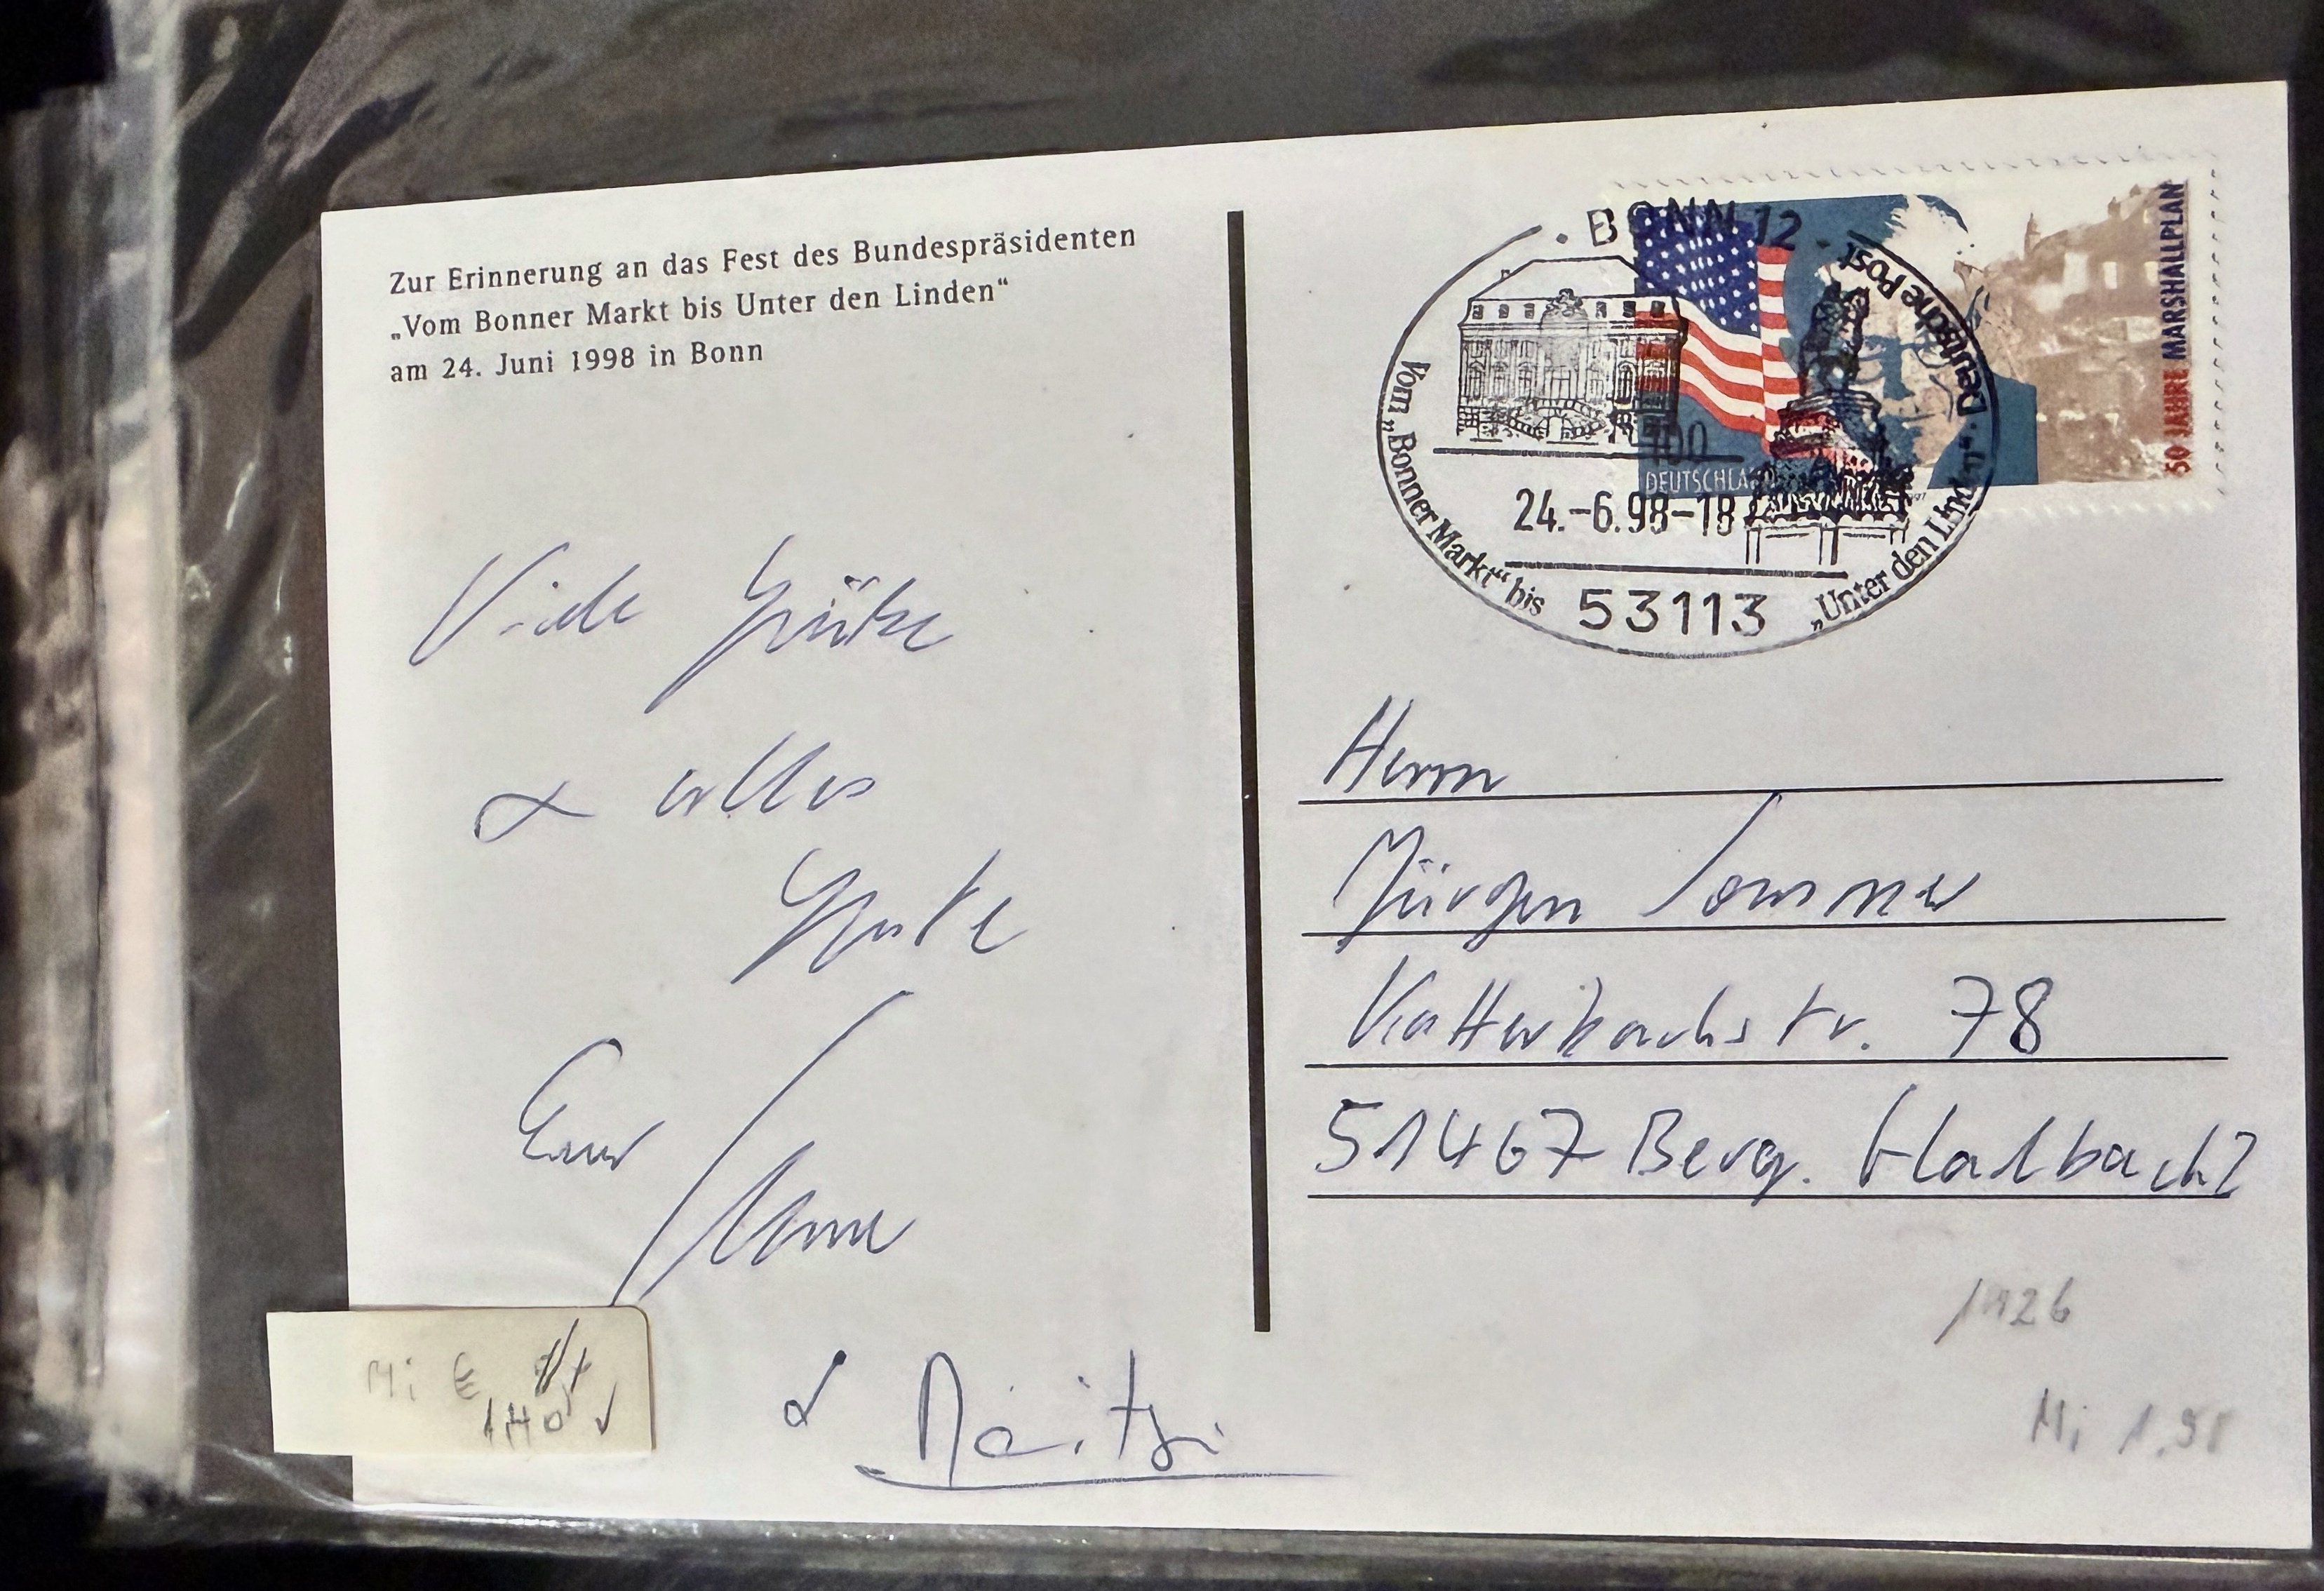 Zur Erinnerung an das Fest des Bundespräsidenten
„Vom Bonner Markt bis Unter den Linden“
am 24. Juni 1998 in Bonn
Viele Grüße
& alles
Gute
Euer
&
BONN 12
Deutsche Post
Vom „Bonner Markt“ bis „Unter den Linden“
24.-6.98-18
53113
100
DEUTSCHLAND
50 JAHRE MARSHALLPLAN
Herrn
Jürgen Sommer
Katterbachstr. 78
51467 Berg. Gladbach 2
1926
Mi E
Mi